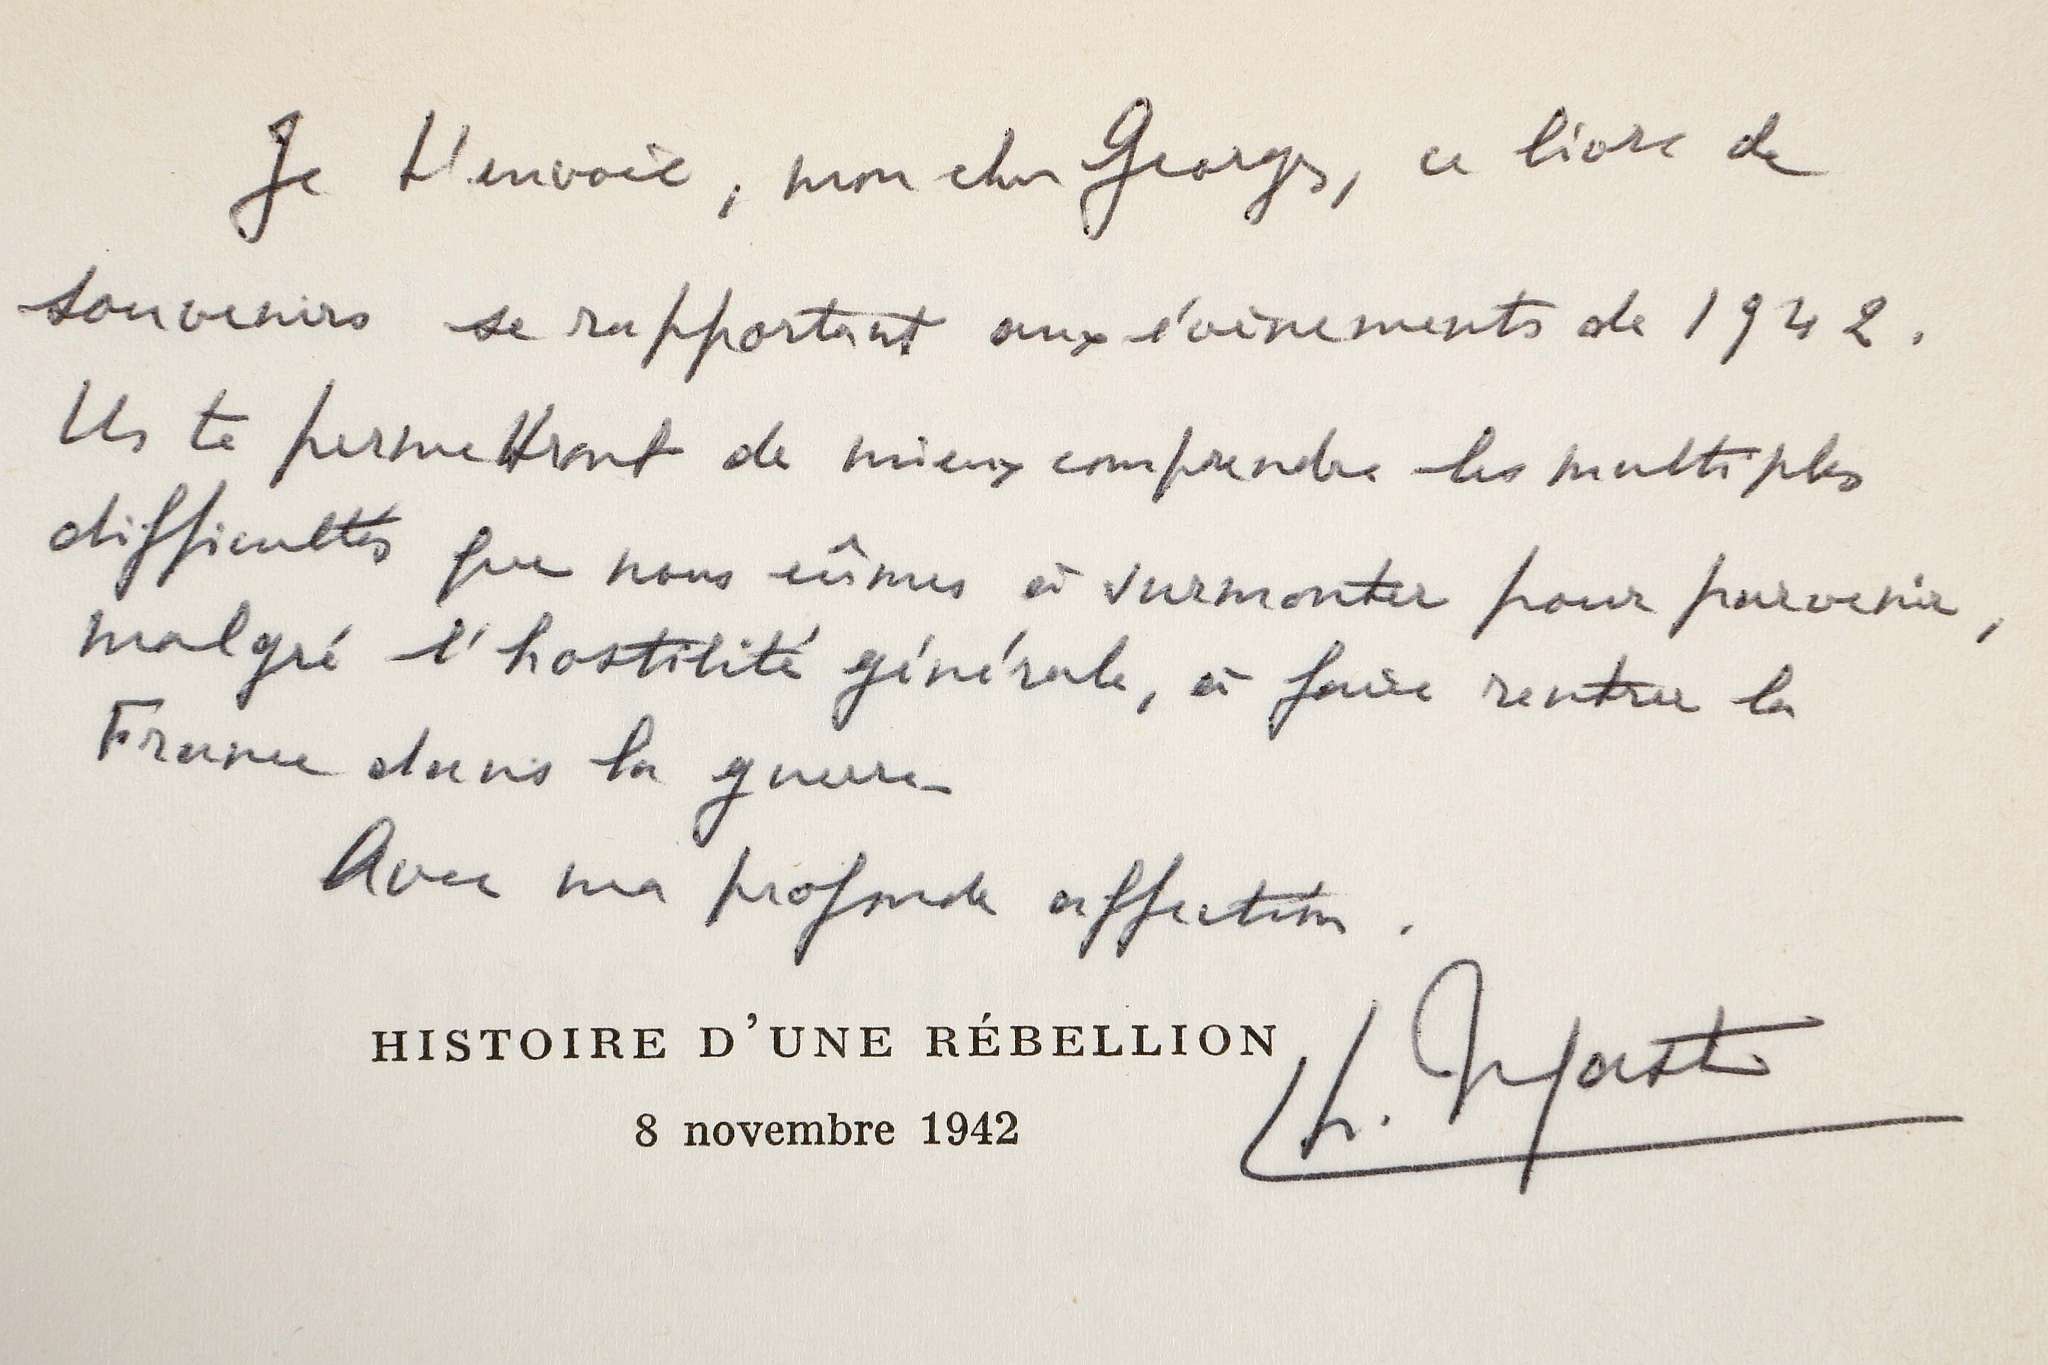 Je t'envoie, mon cher Georges, ce livre de
souvenirs se rapportant aux évènements de 1942.
Ils te permettront de mieux comprendre les multiples
difficultés que nous eûmes à surmonter pour parvenir,
malgré l'hostilité générale, à faire rentrer la
France dans la guerre
Avec ma profonde affection.
HISTOIRE D'UNE RÉBELLION
Ch. Mast
8 novembre 1942